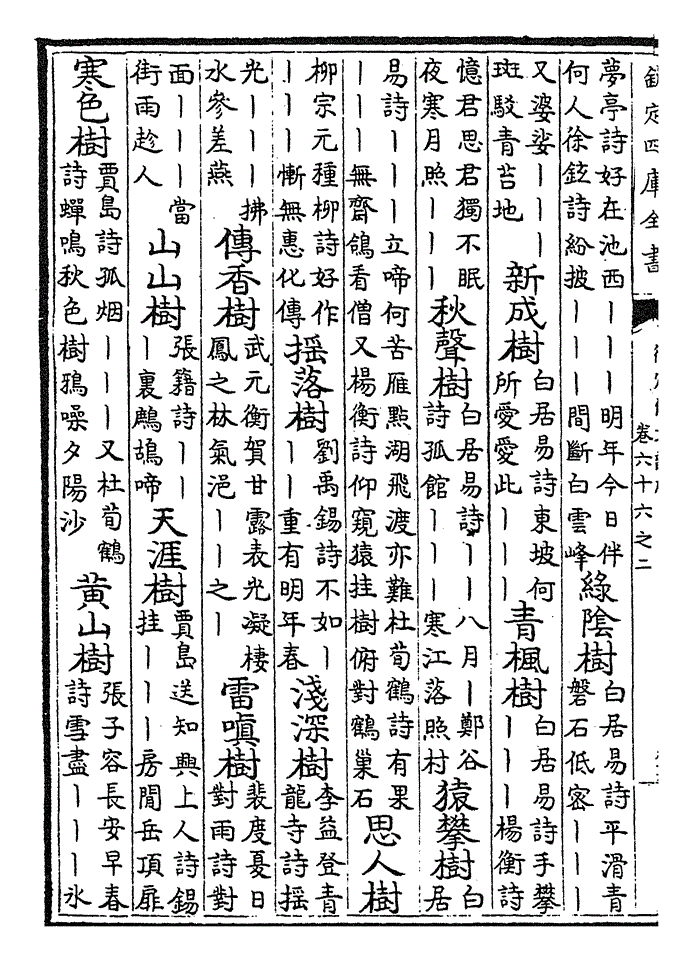 欽定四庫全書
卷六十六之二
夢亭詩好在池西丨丨丨明年今日伴
何人徐鉉詩紛披丨丨丨間斷白雲峰
綠陰樹
白居易詩平滑青
磐石低密丨丨丨
又婆娑丨丨丨
斑駁青苔地
新成樹
白居易詩東坡何
所愛愛此丨丨丨
青楓樹
白居易詩手攀
丨丨丨楊衡詩
憶君思君獨不眠
夜寒月照丨丨丨
秋聲樹
白居易詩丨丨八月丨鄭谷
詩孤館丨丨丨寒江落照村
猿攀樹
白
居
易詩丨丨丨立啼何苦雁點湖飛渡亦難杜荀鶴詩有果
丨丨丨無齋鴿看僧又楊衡詩仰窺猿挂樹俯對鶴巢石
思人樹
柳宗元種柳詩好作
丨丨丨慚無惠化傳
摇落樹
劉禹錫詩不如丨
丨丨重有明年春
淺深樹
李益登青
龍寺詩摇
光丨丨丨拂
水參差燕
傳香樹
武元衡賀甘露表光凝棲
鳳之林氣浥丨丨之丨
雷嗔樹
裴度夏日
對雨詩對
面丨丨丨當
街雨趁人
山山樹
張籍詩丨丨
丨裏鷓鴣啼
天涯樹
賈島送知興上人詩錫
挂丨丨丨房閒岳頂扉
寒色樹
賈島詩孤烟丨丨丨又杜荀鶴
詩蟬鳴秋色樹鴉噪夕陽沙
黄山樹
張子容長安早春
詩雪盡丨丨丨水